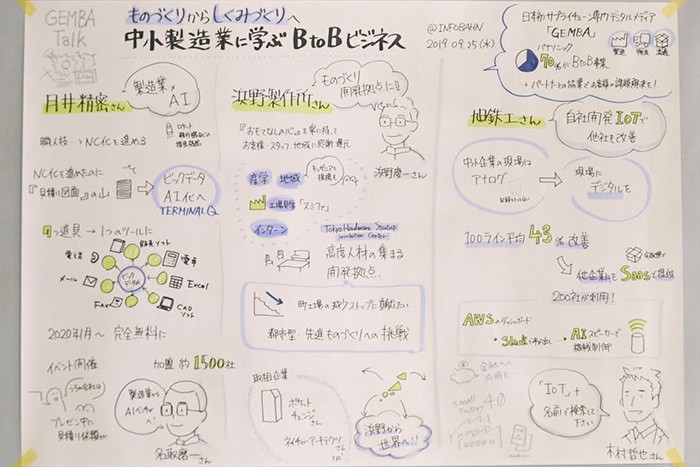 GEMBA
Talk
ものづくりからしくみづくりへ
中小製造業に学ぶBtoBビジネス
@INFOBAHN
2019 09.25(水)
日本初サプライチェーン専門デジタルメディア
「GEMBA」
パナソニック
70%がBtoB事業
→パートナーとの協業でお客様の課題解決を!
製造
物流
流通
月井精密さん
製造業×
AI
職人技→NC化を進める
NC化を進めたのに
『見積り図面』の山
ビッグデータ
AI化へ
TERMINALQ
7つ道具→1つのツールに
電話
会計ソフト
電卓
メール
ビッグ
データ
Excel
FAX
CAD
ソフト
2020年1月〜完全無料に
イベント開催
加盟 約1500社
プレゼン中に
見積り依頼が
製造業から
AIベンチャーへ
名取磨一さん
浜野製作所さん
ものづくり
開発拠点に!
『おもてなしの心』を常に持って
お客様・スタッフ、地域に感謝・還元
浜野慶一さん
産学
地域
工場見学「スミファ」
インターン
Tokyo Hardware Startup
Incubation Center
高度人材の集まる
開発拠点
町工場の減少ストップに貢献したい
都市型 先進ものづくりへの挑戦
取組企業
ポケット
チェンジさん
浜野から
世界へ!!
旭鉄工さん
自社開発IoTで
他社も改善
中小企業の現場は
アナログ
現場に
デジタルを
100ライン平均43%改善
他企業にもSaaSで提供
200社が利用!
AWSのダッシュボード
→Slackで呼出し→AIスピーカーで
Smart
factory 4.0
「IoT」+
名前で検索して
下さい
木村哲也さん